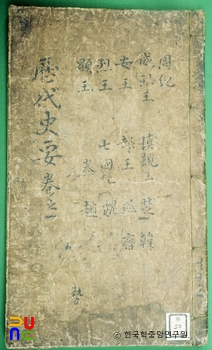 周紀
威烈王 慎靚王 楚 韓
安王 赧王 燕 齊
烈王 七國 魏
顯王 秦 趙
歷代史要 卷之一
共
© 한국학중앙연구원